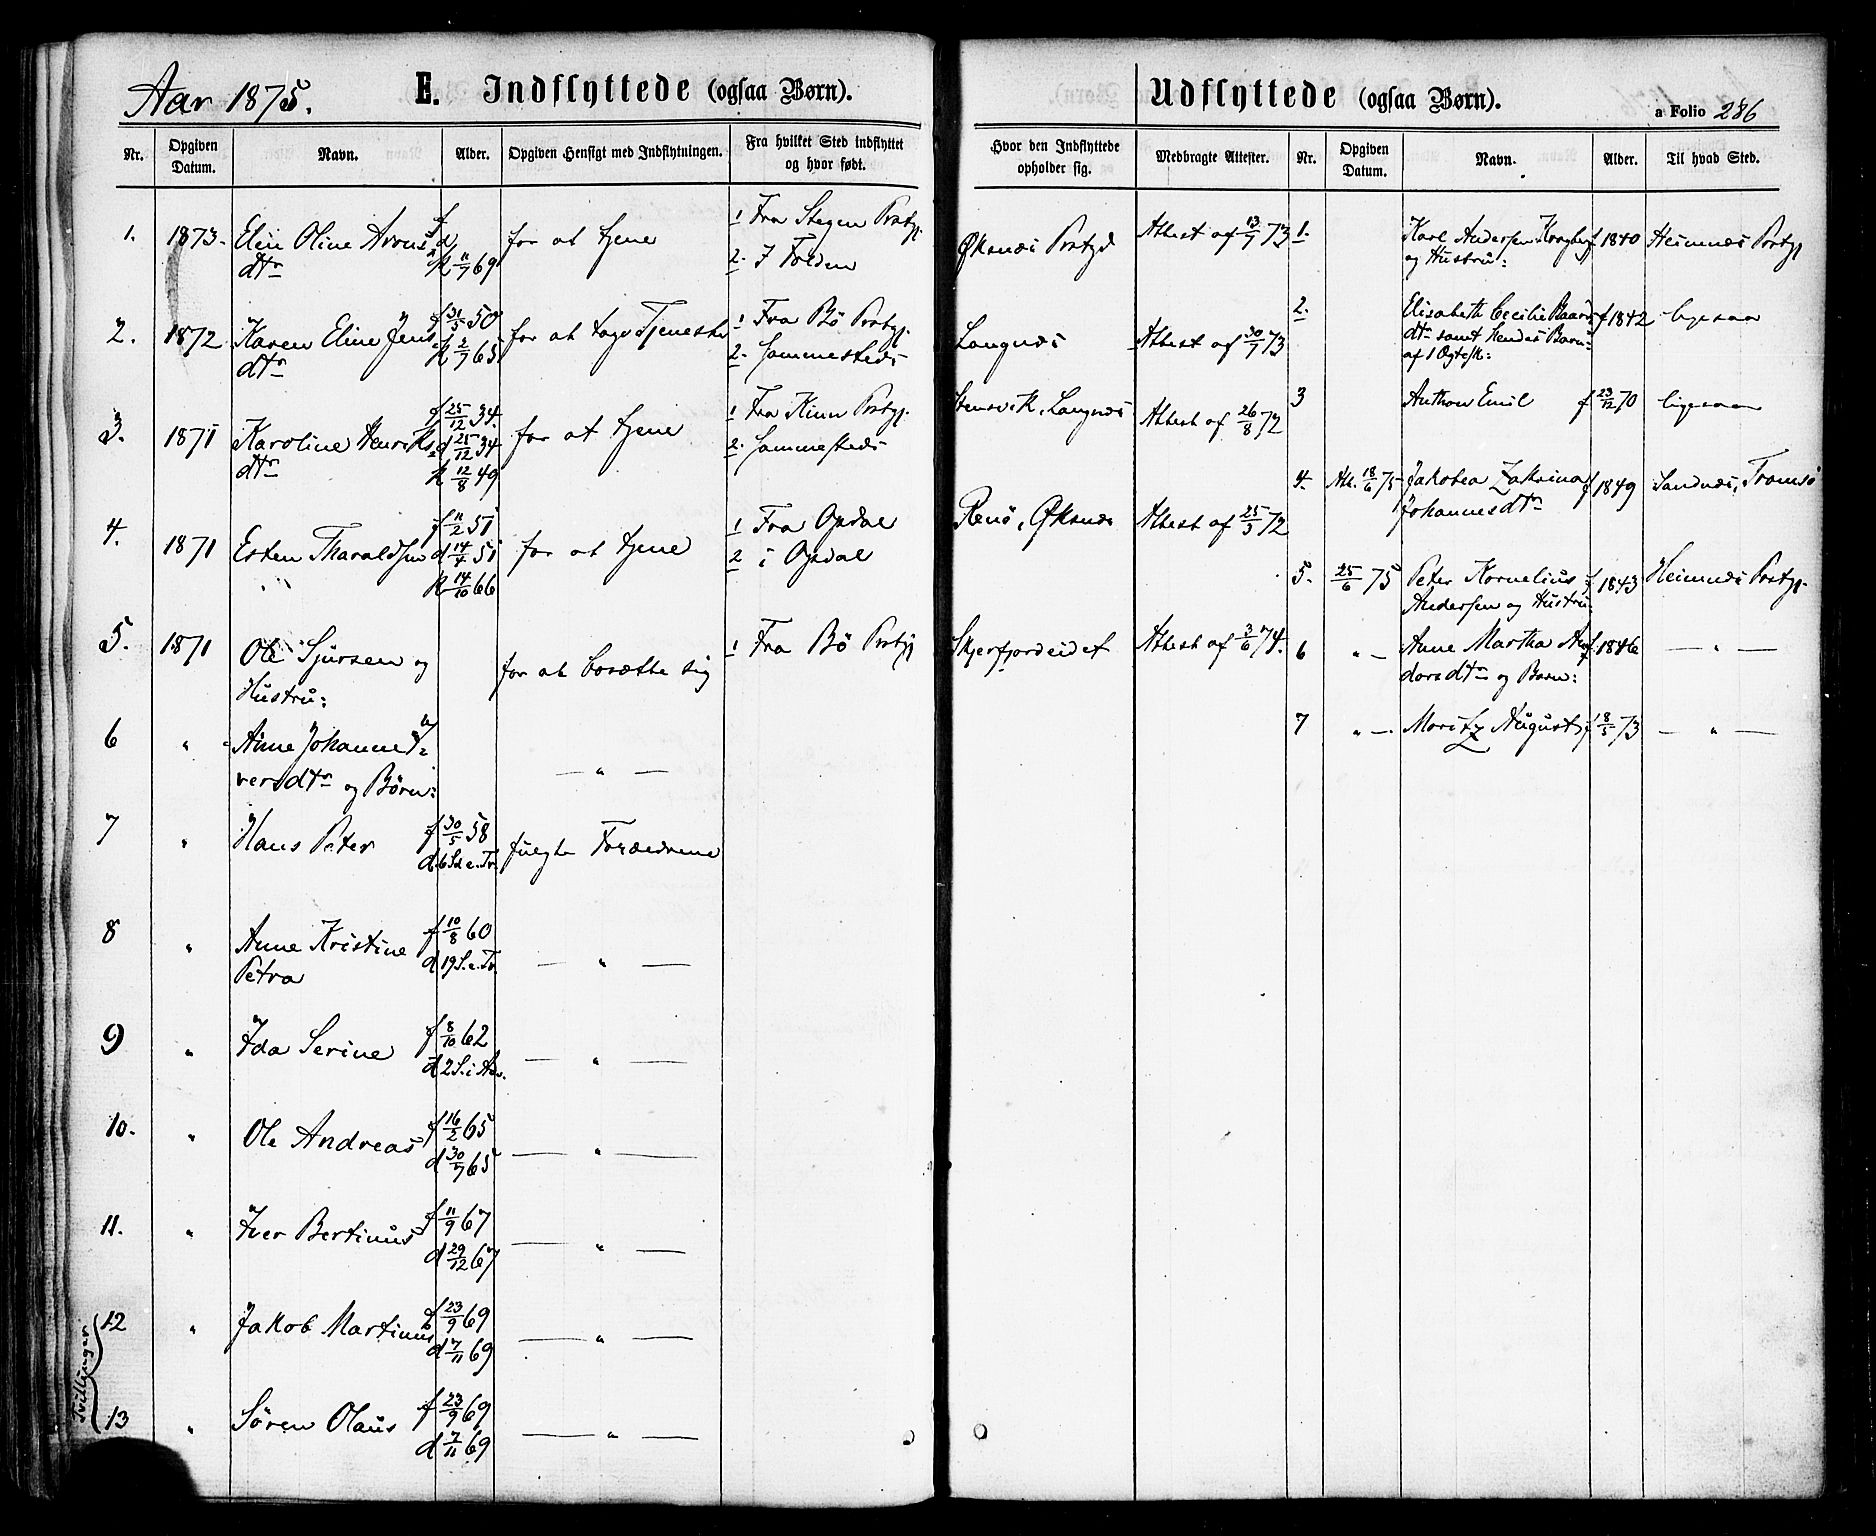 Aar 1875.
E. Indflyttede (ogsaa Børn).
Nr.
Opgiven Datum.
Navn.
Alder.
Opgiven Hensigt med Indflytningen.
Fra hvilket Sted indflyttet og hvor født.
Hvor den Indflyttede opholder sig.
Medbragte Attester.
1. 1873. Elen Oline for at tjene 1 Fra Stegen Prstgj. Øksnæs Prstgd Attest af 13/7 73
dtr K 11/7 69 2. I Folden
2. 1872 Karen Eline Jens f 31/5 50 for at tage Tjeneste 1 Fra Bø Prstgj. Langnæs Attest af 30/7 73
dtr K 2/7 65 2. Sammesteds
3. 1871 Karoline Henriks f 25/12 34. for at tjene 1 Fra Kinn Prstgj. Langnæs Attest af 26/8 72
dtr d 25/12 34 2. Sammesteds
K 12/8 49
4. 1871 Esten Tharaldsen f 11/2 51 for at tjene 1 Fra Opdal Renø, Øksnæs Attest af 25/3 72
d 14/4 51 2 i Opdal
K 14/10 66
5. 1871 Ole Sjursen og for at bosætte sig 1 Fra Bø Prstgj Skjerfjordeidet Attest af 3/6 74.
Hustru:
6 " Anne Johanne I= — " —
versdtr og Børn:
7 " Hans Peter f 30/5 58 fulgte Forældrene
d. 6 S. e. Tr.
8 " Anne Kristine f 10/8 60 — " —
Petra d 19 S. e. Tr.
9 " Ida Serine f 8/10 62 — " —
d 2 S. i Adv.
10. " Ole Andreas f 16/2 65 — " —
d 30/7 65
11. " Iver Bertinus f 11/9 67 — " —
d 29/12 67
Tvillinger
12 " Jakob Martinus f 23/9 69 — " —
d 7/11 69
13 " Søren Olaus f 23/9 69 — " —
d 7/11 69
Udflyttede (ogsaa Børn).
a Folio 286
Nr.
Opgiven Datum.
Navn.
Alder.
Til hvad Sted.
1. Karl Andersen f 1840 Hemnæs Prstgj
og Hustru:
2. Elisabeth Cecilie Baards f 1842 ligesaa
dtr samt Hendes Barn
af 1 Ægtesk:
3 Anthon Emil f 23/12 70 ligesaa
4. Att. 18/6 75 Jakobea Zakrina f 1849 Sandnæs, Tromsø
Johannesdtr
5. 25/6 75 Peter Kornelius f 1843 Hemnæs Prstgj.
Andersen og Hustru
6 " — Anne Martha f. 1846 — " —
dorsdtr og Barn:
7 " — Moritz August f 8/5 73 — " —